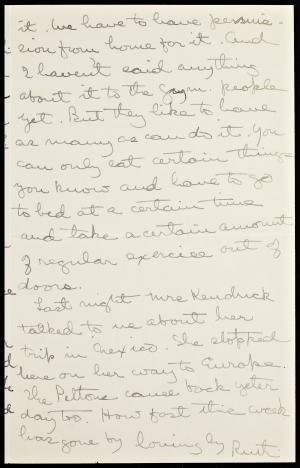 it. We have to have permis-
sion from home for it. And
I haven't said anything
about it to the Gym. people
yet. But they like to have
as many as can do it. You
can only eat certain things
you know and have to go
to bed at a certain time
and take a certain amount
of regular exercise out of
doors.
Last night Mrs Kendrick
talked to us about her
trip in Mexico. She stopped
here on her way to Europe.
The Peltons came back yester
day too. How fast this week
has gone by. Loving by Ruth